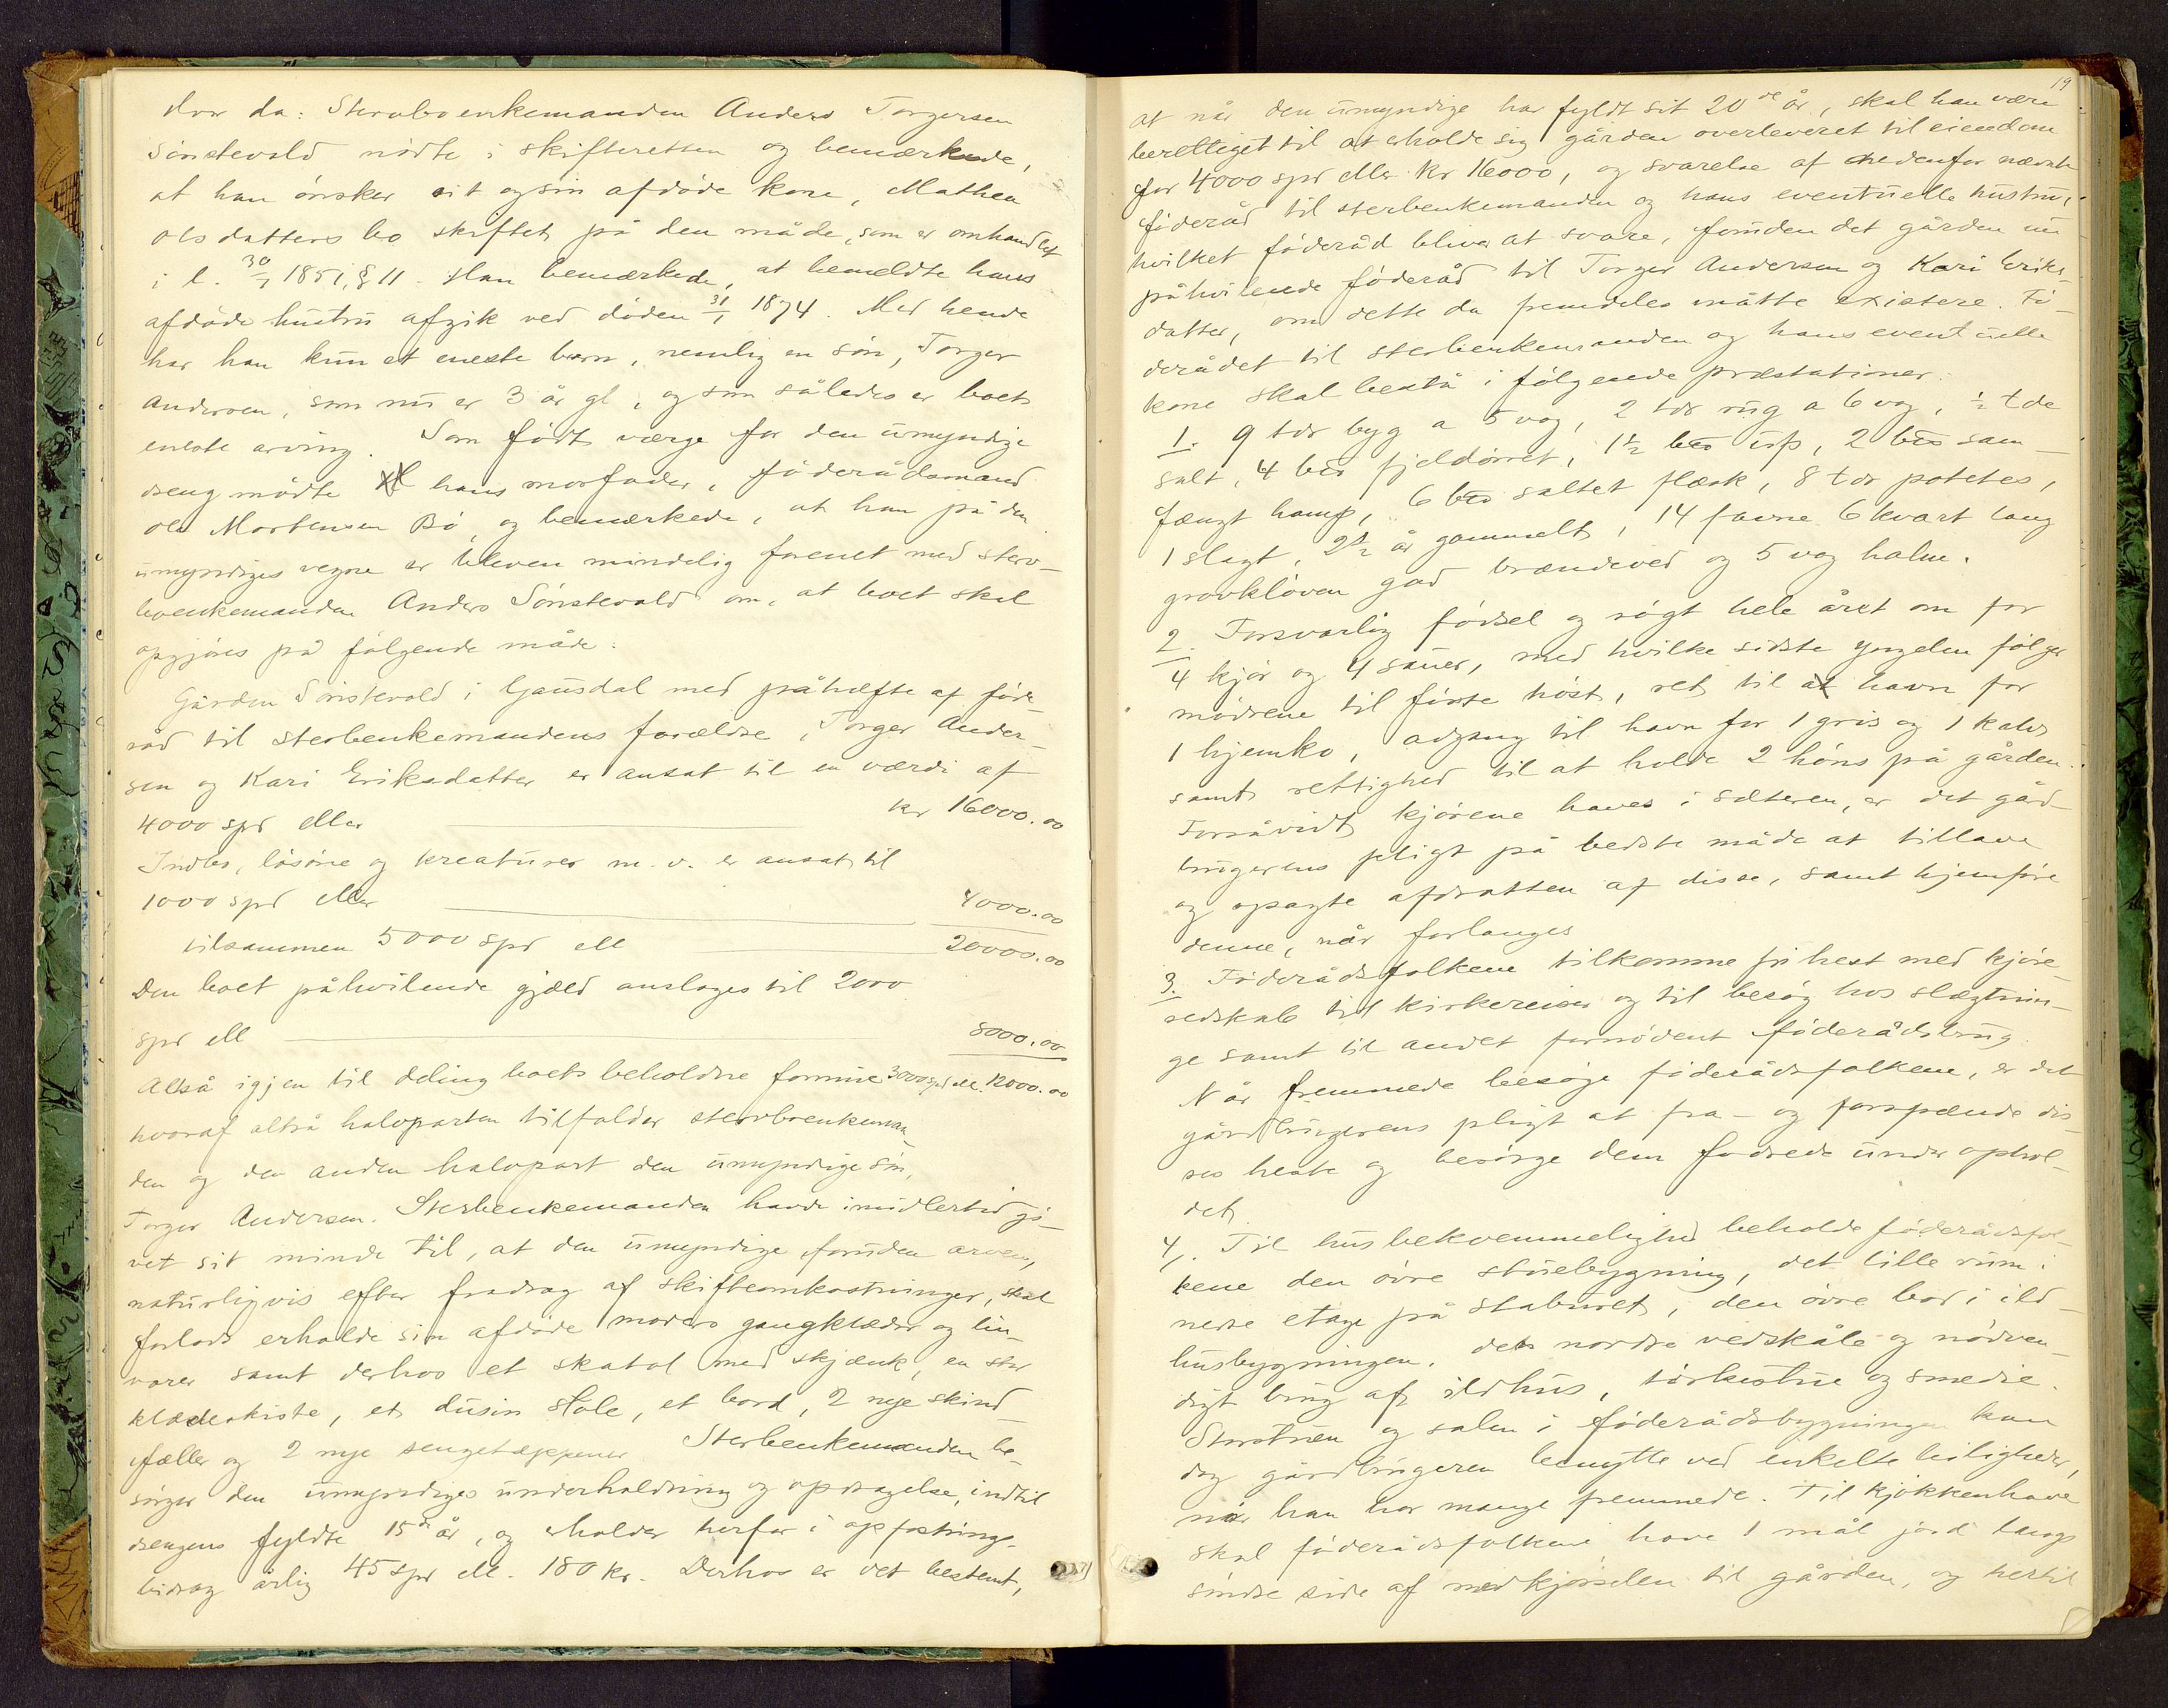 Hvor da: Stervboenkemanden Anders Torgersen
Sönstevold mödte i skifteretten og bemærkede,
at han önsker sit og sin afdöde kone, Mathea
Olsdatters bo skiftet på den måde, som er omhandlet
i l. 30/7 1851, § 11. Han bemærkede, at bemeldte hans
afdöde hustru afgik ved döden 31/1 1874. Med hende
har han kun et eneste barn, nemlig en sön, Torger
Andersen, som nu er 3 år gl, og som således er boets
eneste arving. Som födt værge for den umyndige
dreng mödte hans morfader, föderådsmand
Ole Mortensen Bö, og bemærkede, at han på den
umyndiges vegne er bleven mindelig forenet med sterv-
boenkemanden Anders Sönstevold om, at boet skal
opgjöres på fölgende måde:
Gården Sönstevold i Gausdal med påhæfte af föde-
råd til sterbenkemandens forældre, Torger Ander-
sen og Kari Eriksdatter er ansat til en værdi af
4000 spd eller kr 16000.00
Indbo, lösöre og kreaturer m. v. er ansat til
1000 spd eller 4000.00
tilsammen 5000 spd ell 20000.00
Den boet påhvilende gjæld anslages til 2000
spd ell 8000.00
Altså igjen til deling boets beholdne formue 3000 spd ell. 12000.00
hvoraf altså halvparten tilfalder stervboenkeman-
den og den anden halvpart den umyndige sön,
Torger Andersen. Sterbenkemanden havde imidlertid gi-
vet sit minde til, at den umyndige foruden arven,
naturligvis efter fradrag af skifteomkostninger, skal
forlods erholde sin afdöde moders gangklæder og lin-
varer samt derhos et skatol med skjænk, en stor
klædeskiste, et dusin stole, et bord, 2 nye skind-
fæller og 2 nye sengetæppener. Sterbenkemanden be-
sörger den umyndiges underholdning og opdragelse, indtil
drengens fyldte 15de år, og erholder herfor i opfostrings-
bidrag årlig 45 spd ell. 180 kr. Derhos er det bestemt,
19
at når den umyndige har fyldt sit 20de år, skal han være
berettiget til at erholde sig gården overleveret til eiendom
for 4000 spd eller kr 16000, og svarelse af nedenfor nævnte
föderåd til sterbenkemanden og hans eventuelle hustru,
hvilket föderåd bliver at svare, foruden det gården nu
påhvilende föderåd til Torger Andersen og Kari Eriks-
datter, om dette da fremdeles måtte existere. Fö-
derådet til sterbenkemanden og hans eventuelle
kone skal bestå i fölgende præstationer:
1. 9 tdr byg a 5 vog, 2 tdr rug a 6 vog, ½ tde
salt, 4 bpd fjeldörret, 1½ bpd usp, 2 bpd sam-
fængt hamp, 6 bpd saltet flæsk, 8 tdr potetes,
1 slagt, 2½ år gammelt, 14 favne 6 kvart lang
grovklöven god brændeved og 5 vog halm.
2. Forsvarlig födsel og rögt hele året om for
4 kjör og 4 sauer, med hvilke sidste yngelen fölger
mödrene til förste höst, ret til havn for
1 hjemko, adgang til havn for 1 gris og 1 kalv
samt rettighed til at holde 2 höns på gården.
Forsåvidt kjörene haves i sæteren, er det gård-
brugerens pligt på bedste måde at tillave
og opagte afdrotten af disse, samt hjemföre
denne, når forlanges
3. Föderådsfolkene tilkomme fri hest med kjöre-
redskab til kirkereiser og til besög hos slægtnin-
ge samt til andet fornödent föderådsbrug.
Når fremmede besöge föderådsfolkene, er det
gårdbrugerens pligt at fra- og forspænde dis-
ses heste og besörge dem fodrede under ophol-
det.
4. Til husbekvemmelighed beholde föderådsfol-
kene den övre stuebygning, det lille rum i
nedre etage på staburet, den övre bod i ild-
husbygningen, den nordre vedskåle og nödven-
digt brug af ildhus, törkestue og smedie.
Storstuen og salen i föderådsbygningen kan
dog gårdbrugeren benytte ved enkelte leiligheder,
når han har mange fremmede. Til kjökkenhave
skal föderådsfolkene have 1 mål jord langs
söndre side af nedkjörselen til gården, og hertil